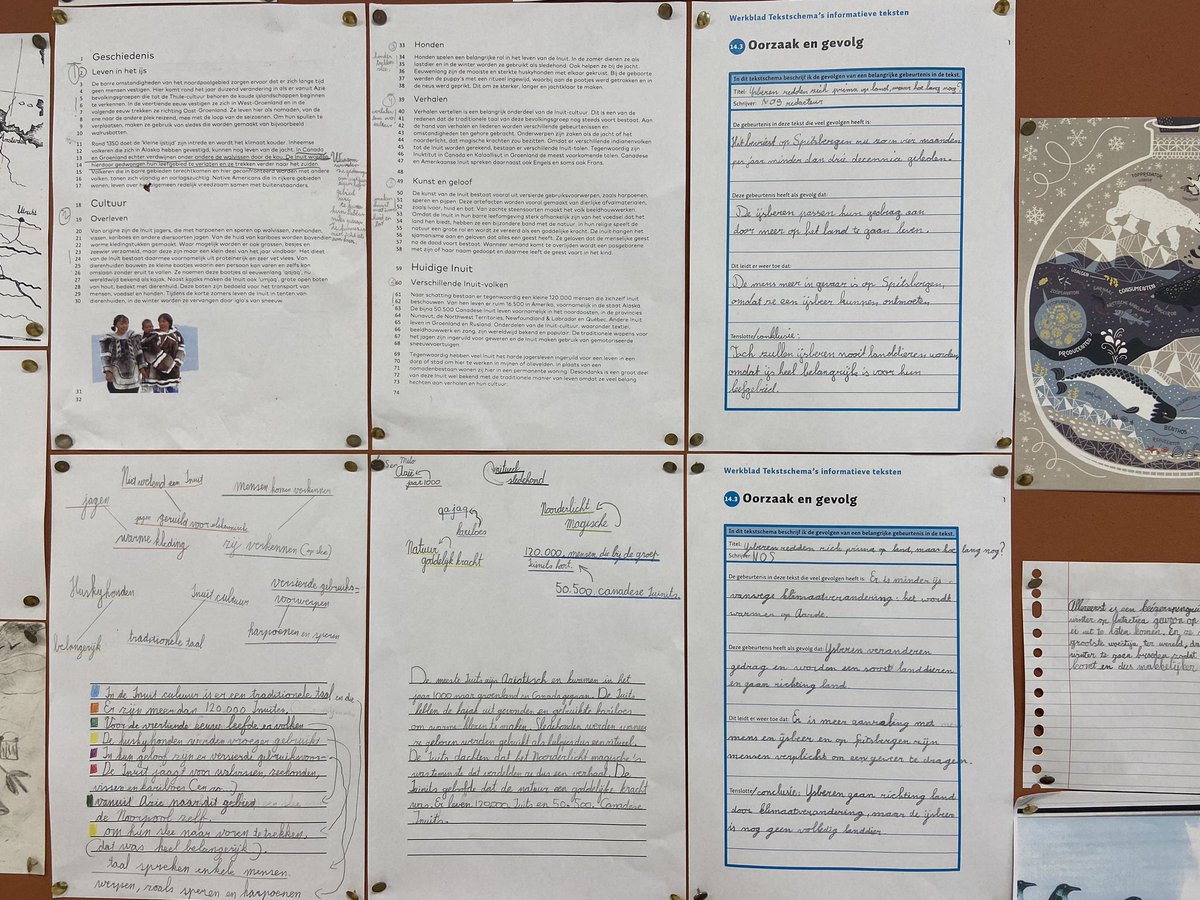 Geschiedenis
Leven in het ijs
De barre omstandigheden van het noordpoolgebied zorgen ervoor dat er zich lange tijd
geen mensen vestigen. Hier komt rond het jaar duizend verandering in als er vanuit Azië
bevolkingsgroepen die tot de Thule-cultuur behoren de koude ijslandschappen beginnen
te verkennen. In de veertiende eeuw vestigen ze zich in West-Groenland en in de
volgende eeuw trekken ze richting Oost-Groenland. Ze leven hier als nomaden, van de
ene naar de andere plek reizend, mee met de loop van de seizoenen. Om hun spullen te
verplaatsen, maken ze gebruik van sledes die worden gemaakt van bijvoorbeeld
walrusbotten.
Rond 1350 doet de 'kleine ijstijd' zijn intrede en wordt het klimaat kouder. Inheemse
volkeren die zich in Alaska hebben gevestigd, kunnen nog leven van de jacht. In Canada
en Groenland echter verdwijnen onder andere de walvissen door de kou. De Inuit worden
hierdoor gedwongen hun leefgebied te verlaten en ze trekken verder naar het zuiden.
Volkeren in barre gebieden terechtkomen en hier geconfronteerd worden met andere
volken, tonen zich vijandig en oorlogszuchtig. Native Americans die in rijkere gebieden
wonen, leven over het algemeen redelijk vreedzaam samen met buitenstaanders.
Cultuur
Overleven
Van origine zijn de Inuit jagers, die met harpoenen en speren op walvissen, zeehonden,
vissen, kariboes en andere diersoorten jagen. Van de huid van kariboes worden
warme kledingstukken gemaakt. Waar mogelijk worden er ook grassen, besjes en
zeewier verzameld, maar deze zijn maar een klein deel van het jaar vindbaar. Het dieet
van de Inuit bestaat daarmee voornamelijk uit proteïnerijk en zeer vet vlees. Van
dierenhuiden bouwen ze kleine bootjes waarin een persoon kan varen en zelfs kan
omslaan zonder eruit te vallen. Ze noemen deze bootjes al eeuwenlang 'qajaq', nu
wereldwijd bekend als kajak. Naast kajaks maken de Inuit ook 'umyaq', grote open boten
van hout, bedekt met dierenhuid. Deze boten zijn bedoeld voor het transport van
mensen, voedsel en honden. Tijdens de korte zomers leven de Inuit in tenten van
dierenhuiden, in de winter worden ze vervangen door iglo's van sneeuw.
Honden
Honden spelen een belangrijke rol in het leven van de Inuit. In de zomer dienen ze als
lastdier en in de winter worden ze gebruikt als sledehond. Ook helpen ze bij de jacht.
Eeuwenlang zijn de mooiste en sterkste huskyhonden met elkaar gekruist. Bij de geboorte
werden de puppy's met een ritueel ingewijd, waarbij aan de pootjes werd getrokken en in
de neus werd geprikt. Dit om ze sterker, langer en jachtklaar te maken.
Verhalen
Verhalen vertellen is een belangrijk onderdeel van de Inuit-cultuur. Dit is een van de
redenen dat de traditionele taal van deze bevolkingsgroep nog steeds voort bestaat. Aan
de hand van verhalen en liederen worden verschillende gebeurtenissen en
omstandigheden ten gehore gebracht. Onderwerpen zijn zaken als de jacht of het
noorderlicht, dat magische krachten zou bezitten. Omdat er verschillende indianenvolken
tot de Inuit worden gerekend, bestaan er verschillende Inuit-talen. Tegenwoordig zijn
Inuktitut in Canada en Kalaallisut in Groenland de meest voorkomende talen. Canadese
en Amerikaanse Inuit spreken daarnaast ook Engels en soms ook Frans.
Kunst en geloof
De kunst van de Inuit bestaat vooral uit versierde gebruiksvoorwerpen, zoals harpoenen,
speren en pijpen. Deze artefacten worden vooral gemaakt van dierlijke afvalmaterialen,
zoals ivoor, huid en bot. Van zachte steensoorten maakt het volk beeldhouwwerken.
Omdat de Inuit in hun barre leefomgeving sterk afhankelijk zijn van het voedsel dat het
land hen biedt, hebben ze een bijzondere band met de natuur. In hun religie speelt de
natuur een grote rol en wordt ze vereerd als een goddelijke kracht. De Inuit hangen het
sjamanisme aan en geloven dat alles een geest heeft. Ze geloven dat de menselijke geest
na de dood voort bestaat. Wanneer iemand komt te overlijden wordt een pasgeborene
met zijn of haar naam gedoopt en daarmee leeft de geest voort in het kind.
Huidige Inuit
Verschillende Inuit-volken
Naar schatting bestaan er tegenwoordig een kleine 120.000 mensen die zichzelf Inuit
beschouwen. Van hen leven er ruim 16.500 in Amerika, voornamelijk in de staat Alaska.
De bijna 50.500 Canadese Inuit leven voornamelijk in het noordoosten, in de provincies
Nunavut, de Northwest Territories, Newfoundland & Labrador en Québec. Andere Inuit
leven in Groenland en Rusland. Onderdelen van de Inuit-cultuur, waaronder textiel,
beeldhouwwerk en zang, zijn wereldwijd bekend en populair. De traditionele wapens voor
het jagen zijn ingeruild voor geweren en de Inuit maken gebruik van gemotoriseerde
sneeuwvoertuigen.
Tegenwoordig hebben veel Inuit het harde jagersleven ingeruild voor een leven in een
dorp of stad om hier te werken in mijnen of olievelden. In plaats van een
nomadenbestaan wonen zij hier in een permanente woning. Desondanks is een groot deel
van deze Inuit wel bekend met de traditionele manier van leven omdat ze veel belang
hechten aan verhalen en hun cultuur.
Werkblad Tekstschema's informatieve teksten
14.3 Oorzaak en gevolg
In dit tekstschema beschrijf ik de gevolgen van een belangrijke gebeurtenis in de tekst.
Titel: Ijsberen redden zich prima op land, maar hoe lang nog?
Schrijver: NOS redacteur
De gebeurtenis in deze tekst die veel gevolgen heeft is:
Het bevriest op Spitsbergen nu zo'n vier maanden
per jaar minder dan drie decennia geleden.
Deze gebeurtenis heeft als gevolg dat:
De ijsberen passen hun gedrag aan
door meer op het land te gaan leven.
Dit leidt er weer toe dat:
De mens meer in gevaar is op Spitsbergen,
omdat ze een ijsbeer kunnen ontmoeten.
Tenslotte/conklusie:
Toch zullen ijsberen nooit landdieren worden,
omdat ijs heel belangrijk is voor hun
leefgebied.
Utrecht
TOPPREDATOR
CONSUMENTEN
PRODUCENTEN
BENTHOS
Niet wetend een Inuit
mensen komen verkennen
jagen
jagen geruild voor elektronische
warme kleding
zij verkennen (op slee)
Huskyhonden
Inuit cultuur
versierde gebruiks-
voorwerpen
belangerijk
traditionele taal
harpoenen en speren
In de Inuit cultuur is er een traditionele taal en die
Er zijn meer dan 120.000 Inuiten.
Voor de veertiende eeuw leefde er volken
De huskyhonden werden vroeger gebruikt
In hun geloof zijn er versierde gebruiksvoor-
De Inuit jaagt voor walvissen, zeehonden,
vissen en kariboes (en zo.)
vanuit Azië naar dit gebied
de Noorpool zelf.
om hun slee naar voren te trekken.
(dat was heel belangrijk).
taal spreken enkele mensen.
werpen, zoals speren en harpoenen
Azië
jaar 1000
ritueel
sledehond
qajaq
kariboes
Noorderlicht
Magische
Natuur
goddelijk kracht
120.000, mensen die bij de groep
Inuits hort.
50.500 canadese Inuits.
De meeste Inuits zijn Aziatisch en kwamen in het
jaar 1000 naar groenland en Canada gegaan. De Inuits
hebben de kajak uit gevonden en gebruikte kariboes
om warme kleren te maken. Sledehonden werden wanneer
ze geboren werden gebruikt als hulpen dus een ritueel.
De Inuits dachten dat het Noorderlicht magische's
was teminste dat vertelden ze dus een verhaal. De
Inuits geloofde dat de natuur een goddelijke kracht
was. Er leven 120.000 Inuits en 50.500, Canadese
Inuits.
Werkblad Tekstschema's informatieve teksten
14.3 Oorzaak en gevolg
In dit tekstschema beschrijf ik de gevolgen van een belangrijke gebeurtenis in de tekst.
Titel: Ijsberen redden zich prima op land, maar hoe lang nog?
Schrijver: NOS
De gebeurtenis in deze tekst die veel gevolgen heeft is: Er is minder ijs
vanwege klimaatverandering: het wordt
warmer op Aarde.
Deze gebeurtenis heeft als gevolg dat: Ijsberen veranderen
gedrag en worden een soort landdieren
en gaan richting land.
Dit leidt er weer toe dat: Er is meer aanraking met
mens en ijsbeer en op Spitsbergen zijn
mensen verplicht om een geweer te dragen.
Tenslotte/conclusie: Ijsberen gaan richting land
door klimaatverandering, maar de ijsbeer
is nog geen volledig landdier.
Allereerst is een keizerspinguïn
winter op Antarctica
ei uit te laten komen. En ze
grootste woestijn ter wereld, da